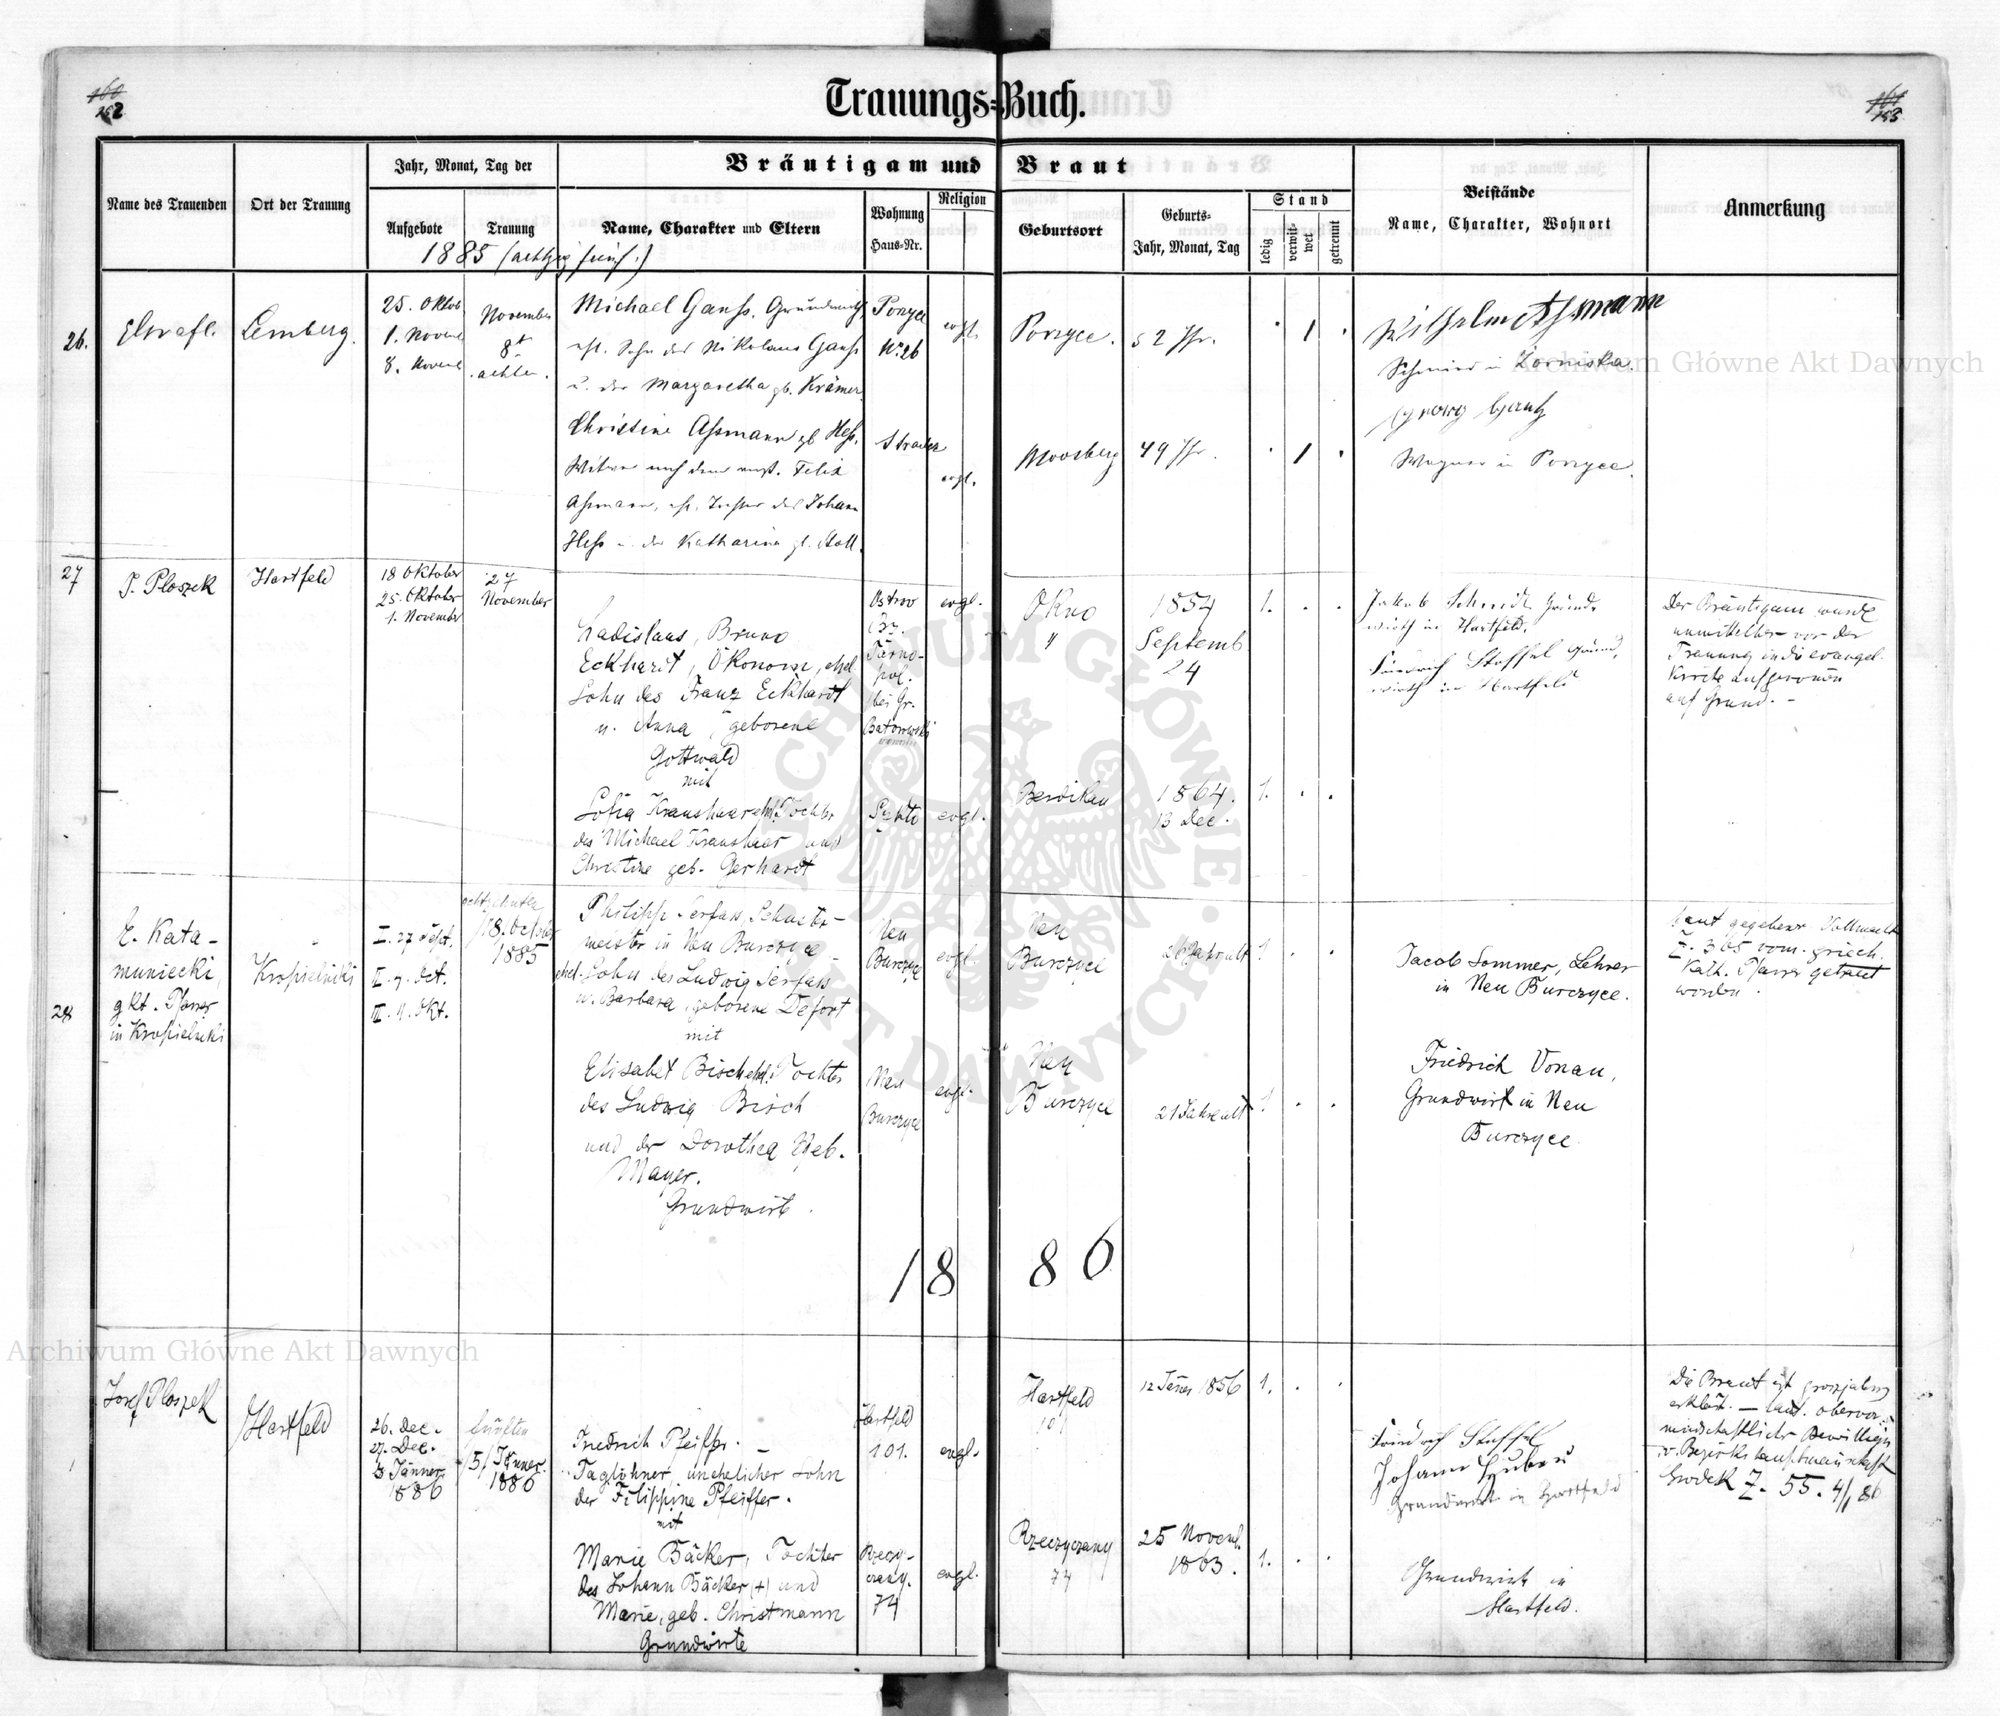 160
252
161
253
Trauungs-Buch.
Name des Trauenden
Ort der Trauung
Jahr, Monat, Tag der
Aufgebote
Trauung
Bräutigam und Braut
Name, Charakter und Eltern
Wohnung
Haus-Nr.
Religion
Geburtsort
Geburts-
Jahr, Monat, Tag
Stand
ledig
verwit-
wet
getrennt
Beistände
Name, Charakter, Wohnort
Anmerkung
1885 (achtzig fünf.)
26.
Lemberg.
25. Oktob
1. Novem
8. Novem
November
8t
achten.
Michael Ganß, Grundwirth
ehl. Sohn des Nikolaus Ganß
u. der Margaretha gb. Krämer.
Christine Aßmann gb Heß,
Witwe nach dem verst. Felix
Aßmann, ehl. Tochter des Johann
Heß u. der Katharina gb. Stoll.
Porzyce
Nr. 26
evgl.
evgl.
Porzyce.
52 Jhr.
1
Moosberg
49 Jhr.
1
Wilhelm Assmann
Schmied in
Georg
Wagner in Porzyce.
27
J. Ploszek
Hartfeld
18 Oktober
25. Oktober
1. November
27
November
Ladislaus, Bruno
Eckhardt, Ökonom, ehel.
Sohn des Franz Eckhardt
u. Anna, geborene
Gottwald
mit
Sofia Kraushaar ehl. Tochter
des Michael Kraushaar und
Christine geb. Gerhardt
Ostrow
Bz.
Tarno-
pol.
bei Gr.
Baworowski
evgl.
evgl.
Okno
"
1854
Septemb.
24
1.
1864.
13 Dec.
1.
Jakob Schmidt Grund-
wirth in Hartfeld.
Friedrich Stoffel Grund-
wirth in Hartfeld
Der Bräutigam wurde
unmittelbar vor der
Trauung in die evangel.
Kirche aufgenomen
auf Grund. -
28
E. Kata-
muniecki,
gkt. Pfarrer
in Kropielniki
Kropielniki
I. 27 Sept.
II. 4. Oct.
III. 11. Okt.
achtzehnten
/18. October
1885
Philipp Serfas, Schuster-
meister in Neu Burczyce
ehel. Sohn des Ludwig Serfass
u. Barbara, geborene Defort
mit
Elisabet Bisch ehel. Tochter
des Ludwig Bisch
und der Dorothea geb.
Mayer.
Grundwirt.
Neu
Burczyce
evgl.
Neu
Burczyce
evgl.
Neu
Burczyce
26 Jahr alt
1.
Neu
Burczyce
21 Jahre alt
1.
Jacob Sommer, Lehrer
in Neu Burczyce.
Friedrich Vonau,
Grundwirt in Neu
Burczyce
Laut gegebener Vollmacht
Z. 365 vom. griech.
Kath. Pfarrer getraut
worden.
1886
1
Josef Ploszek
Hartfeld
26. Dec.
27. Dec.
3 Jänner
1886
fünften
/5/ Jänner
1886
Friedrich Pfeiffer. —
Taglöhner, unehelicher Sohn
der Filippine Pfeiffer.
mit
Marie Bäcker, Tochter
des Johann Bäcker (+) und
Marie, geb. Christmann
Grundwirte
Hartfeld
101.
evgl.
Rzeczy-
czany.
74
evgl.
Hartfeld
101
12 Jäner 1856
1.
Rzeczyczany
74
25 Novemb.
1863.
1.
Friedrich Stoffel
Johann Huber
Grundwirt in Hartfeld
Grundwirth in
Hartfeld.
Die Braut ist grosjährig
erklärt. — laut. obervor-
mundschaftlicher Bewilligung
v. Bezirkshauptmannschaft
Grodek Z. 55. 4/1 86
Archiwum Główne Akt Dawnych
Archiwum Główne Akt Dawnych
ARCHIWUM GŁÓWNE AKT DAWNYCH